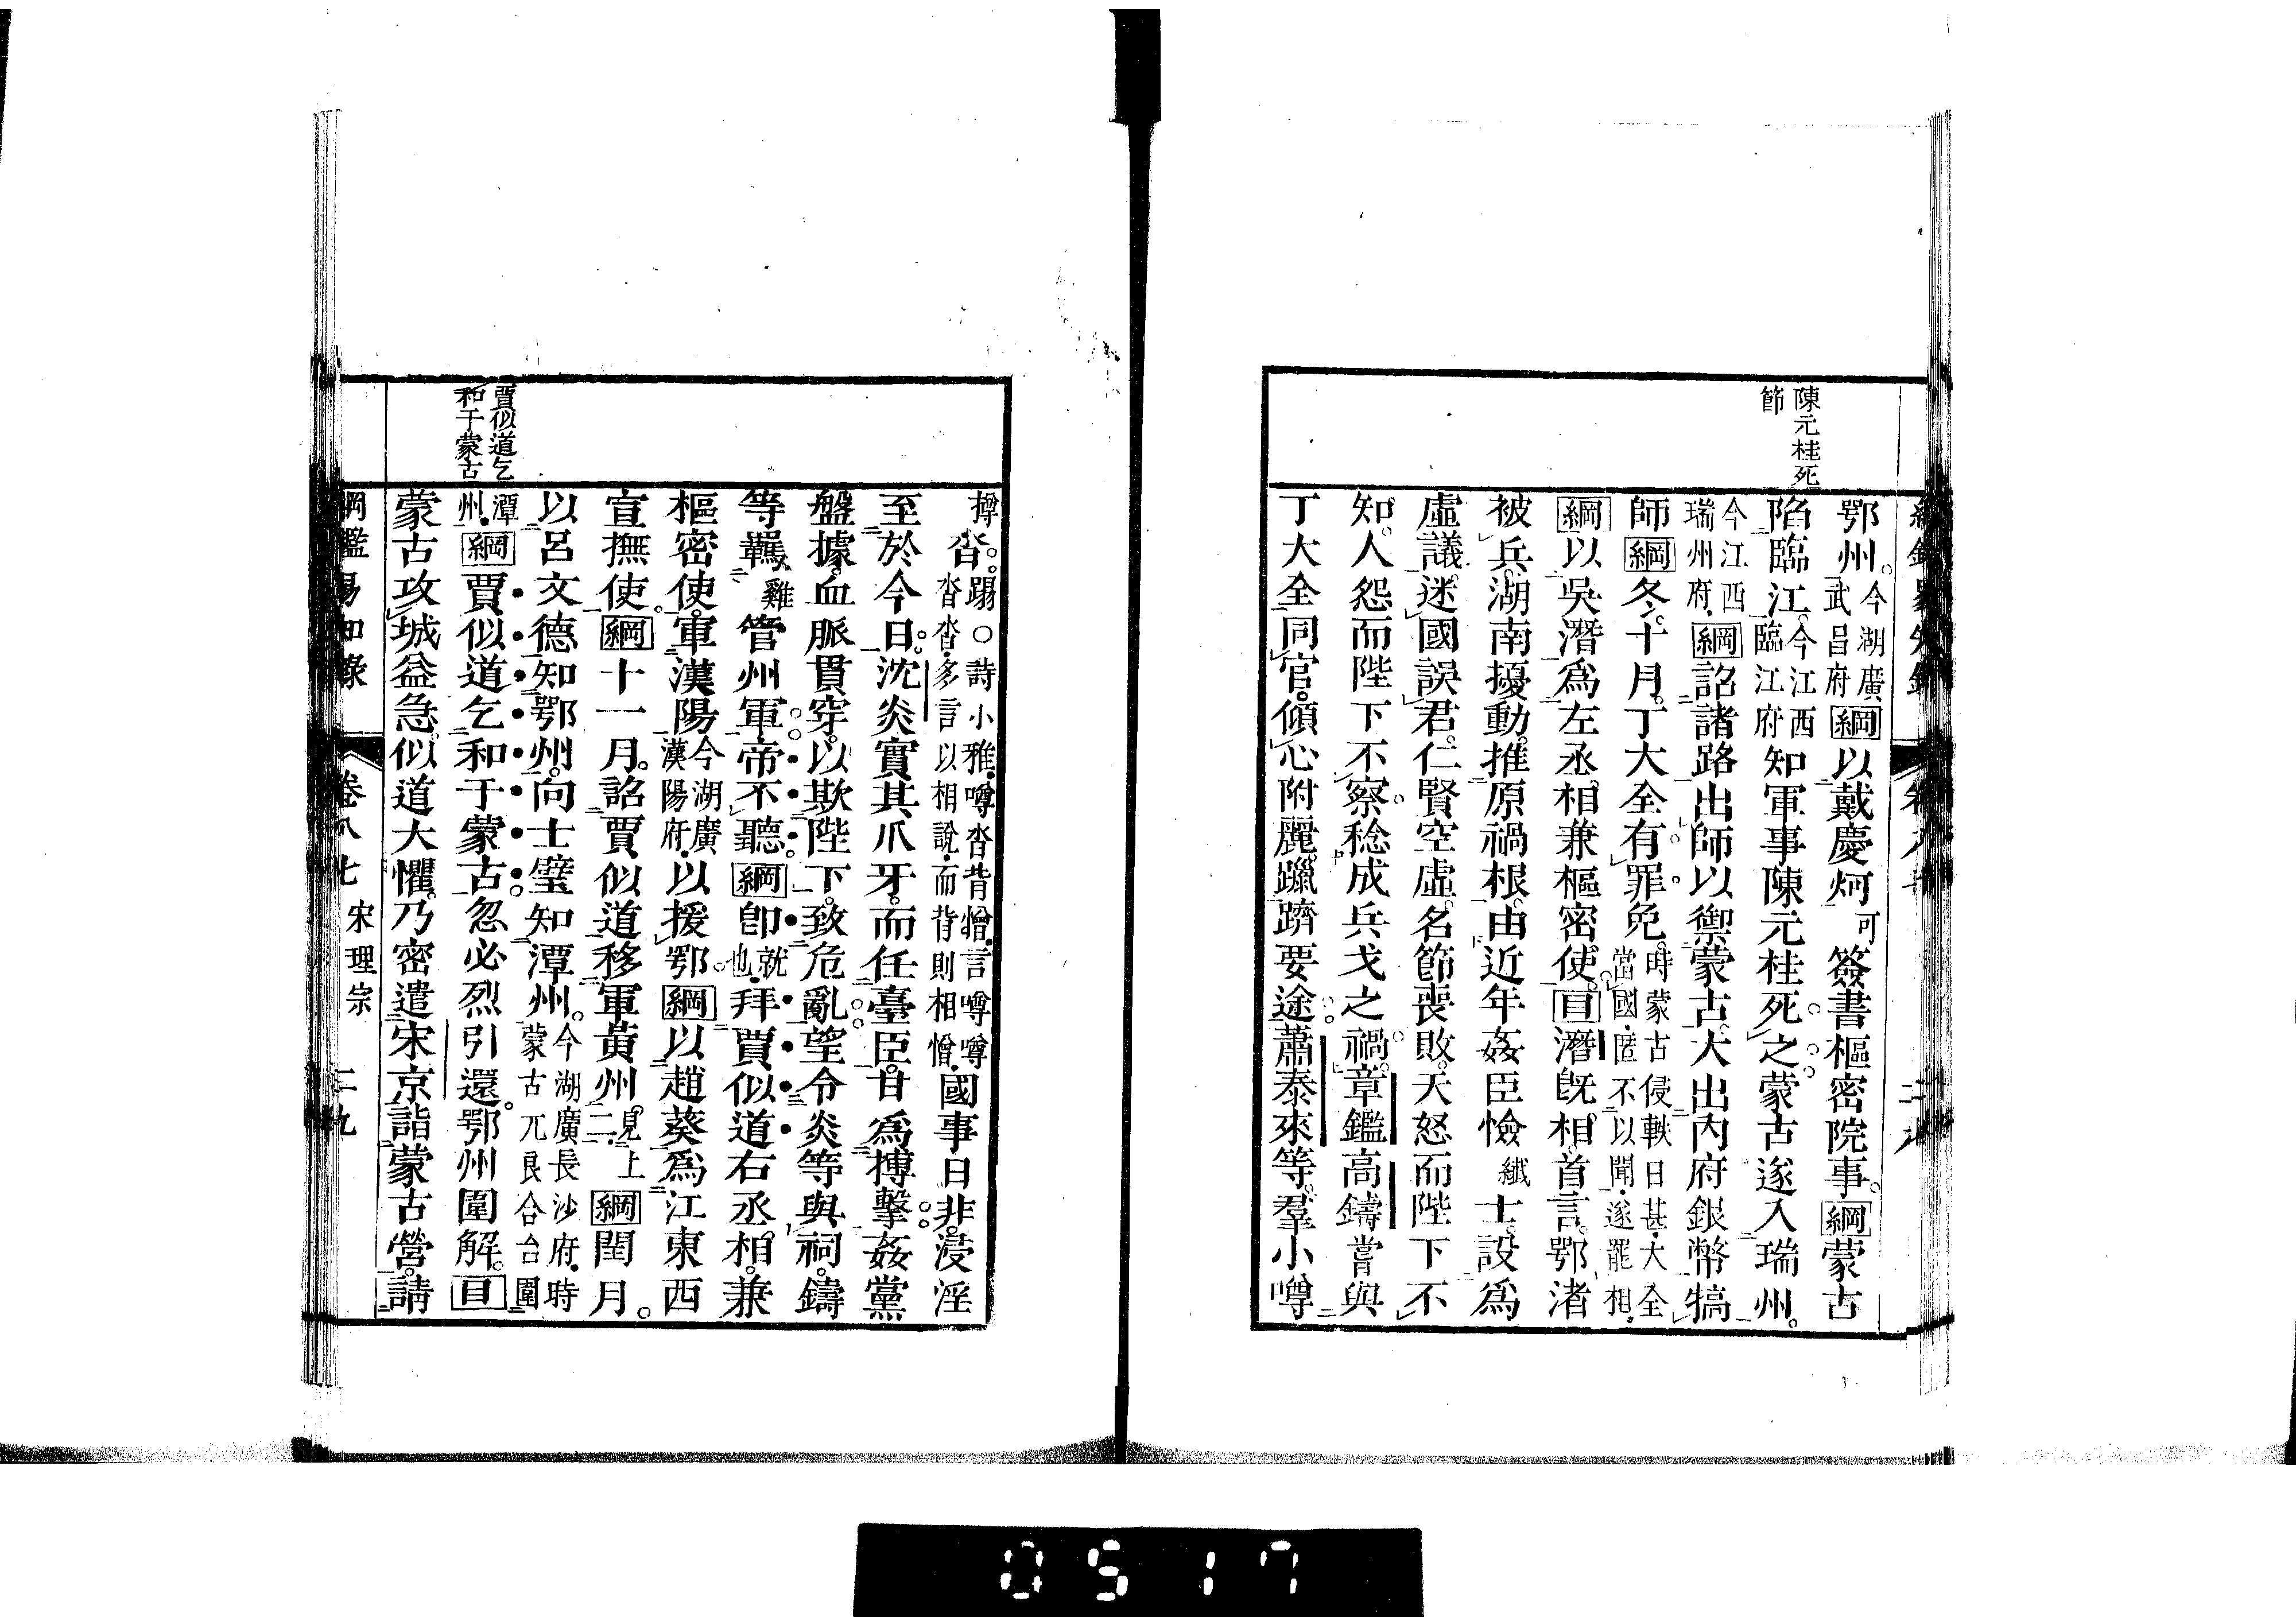 陳元桂死
節
鄂州。今湖廣武昌府綱以戴慶炣可簽書樞密院事。綱蒙古
陷臨江。今江西臨江府知軍事陳元桂死之。蒙古遂入瑞州。
今江西瑞州府。綱詔諸路出師以禦蒙古。大出內府銀幣犒
師綱冬十月。丁大全有罪免。時蒙古侵軼日甚。大全當國。匿不以聞。遂罷相。
綱以吳潛爲左丞相兼樞密使。目潛旣相。首言。鄂渚
被兵。湖南擾動。推原禍根。由近年姦臣憸纖士。設爲
虛議。迷國誤君。仁賢空虛。名節喪敗。天怒而陛下不
知。人怨而陛下不察。稔成兵戈之禍。章鑑高鑄嘗與
丁大全同官。傾心附麗。躐躋要途。蕭泰來等。羣小噂
撙沓。踢○詩小雅。噂沓背憎。言噂噂沓沓。多言以相說。而背則相憎。國事日非。浸淫
至於今日。沈炎實其爪牙。而任臺臣。甘爲搏擊。姦黨
盤據。血脈貫穿。以欺陛下。致危亂。望令炎等與祠。鑄
等羈雞管州軍。帝不聽。綱卽就也。拜賈似道右丞相。兼
樞密使。軍漢陽今湖廣漢陽府。以援鄂。綱以趙葵爲江東西
宣撫使。綱十一月。詔賈似道移軍黃州。見上二綱閏月。
以呂文德知鄂州。向士璧知潭州。今湖廣長沙府。時蒙古兀良合台圍
潭州。綱賈似道乞和于蒙古。忽必烈引還。鄂州圍解。目
蒙古攻城益急。似道大懼。乃密遣宋京詣蒙古營。請
賈似道乞
和于蒙古
綱鑑易知錄　卷八七　宋理宗　二九
0517